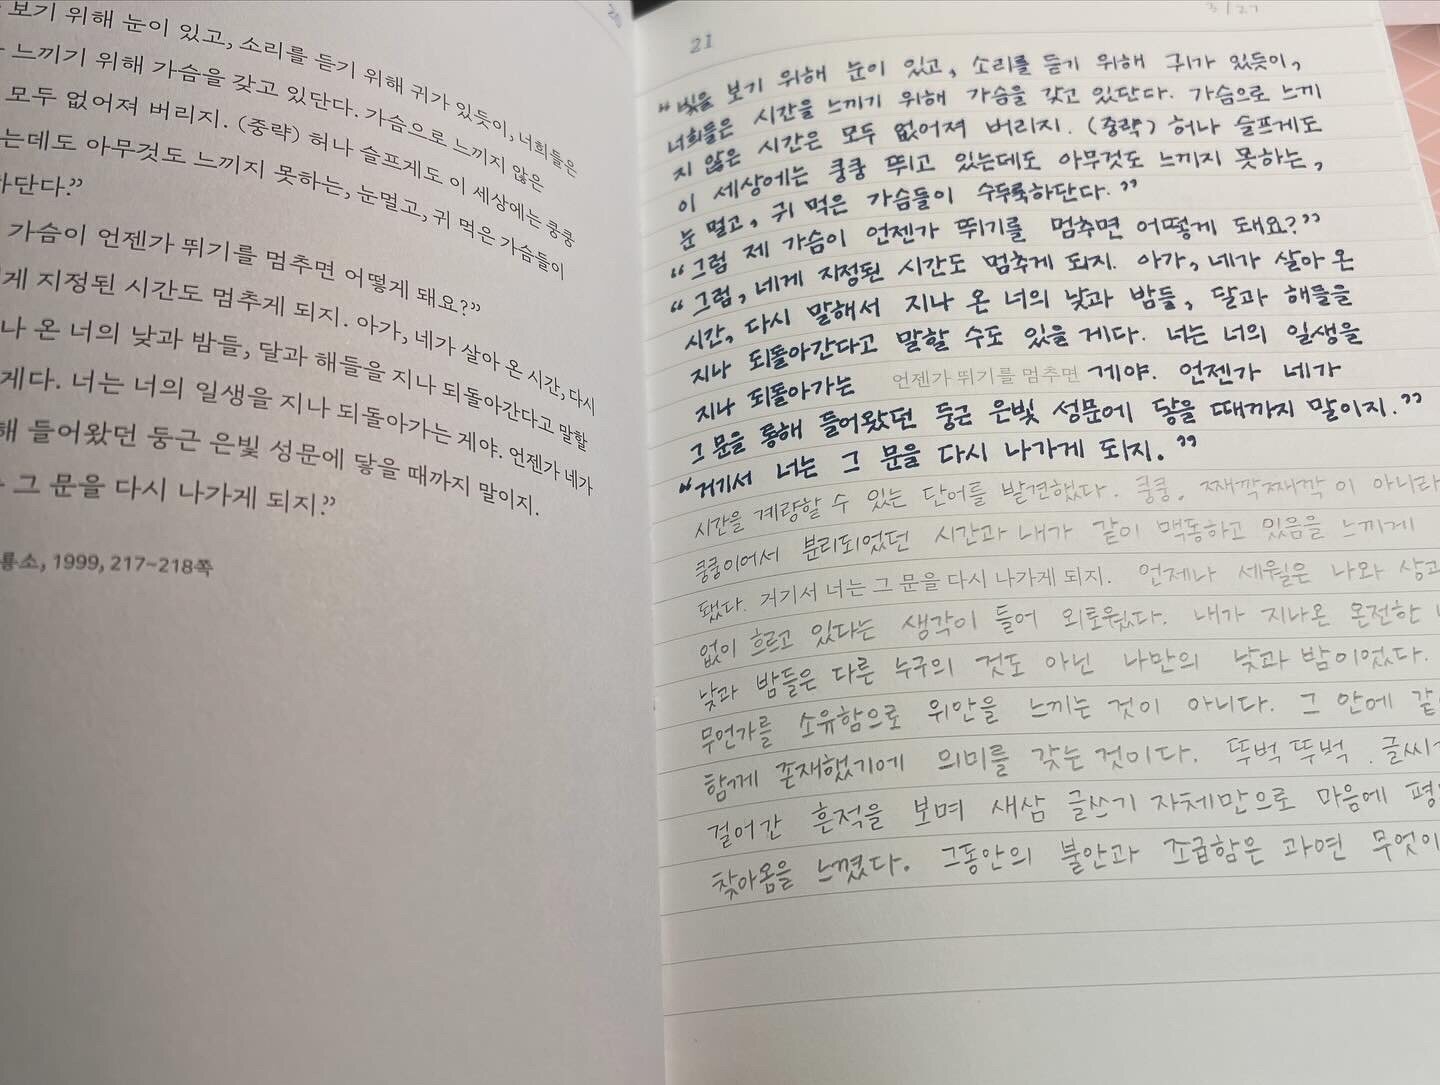 보기 위해 눈이 있고, 소리를 듣기 위해 귀가 있듯이, 너희들은
느끼기 위해 가슴을 갖고 있단다. 가슴으로 느끼지 않은
모두 없어져 버리지. (중략) 허나 슬프게도 이 세상에는 쿵쿵
는데도 아무것도 느끼지 못하는, 눈멀고, 귀 먹은 가슴들이
하단다.”
가슴이 언젠가 뛰기를 멈추면 어떻게 돼요?”
게 지정된 시간도 멈추게 되지. 아가, 네가 살아 온 시간, 다시
나 온 너의 낮과 밤들, 달과 해들을 지나 되돌아간다고 말할
게다. 너는 너의 일생을 지나 되돌아가는 게야. 언젠가 네가
해 들어왔던 둥근 은빛 성문에 닿을 때까지 말이지.
그 문을 다시 나가게 되지.”
룡소, 1999, 217~218쪽
3/27
21
“빛을 보기 위해 눈이 있고, 소리를 듣기 위해 귀가 있듯이,
너희들은 시간을 느끼기 위해 가슴을 갖고 있단다. 가슴으로 느끼
지 않은 시간은 모두 없어져 버리지. (중략) 허나 슬프게도
이 세상에는 쿵쿵 뛰고 있는데도 아무것도 느끼지 못하는,
눈 멀고, 귀 먹은 가슴들이 수두룩하단다.”
“그럼 제 가슴이 언젠가 뛰기를 멈추면 어떻게 돼요?”
“그럼, 네게 지정된 시간도 멈추게 되지. 아가, 네가 살아 온
시간, 다시 말해서 지나 온 너의 낮과 밤들, 달과 해들을
지나 되돌아간다고 말할 수도 있을 게다. 너는 너의 일생을
지나 되돌아가는 언젠가 뛰기를 멈추면 게야. 언젠가 네가
그 문을 통해 들어왔던 둥근 은빛 성문에 닿을 때까지 말이지.”
“거기서 너는 그 문을 다시 나가게 되지.”
시간을 계량할 수 있는 단어를 발견했다. 쿵쿵. 째깍째깍이 아니라
쿵쿵이어서 분리되었던 시간과 내가 같이 맥동하고 있음을 느끼게
됐다. 거기서 너는 그 문을 다시 나가게 되지. 언제나 세월은 나와 상관
없이 흐르고 있다는 생각이 들어 외로웠다. 내가 지나온 온전한
낮과 밤들은 다른 누구의 것도 아닌 나만의 낮과 밤이었다.
무언가를 소유함으로 위안을 느끼는 것이 아니다. 그 안에
함께 존재했기에 의미를 갖는 것이다. 뚜벅뚜벅. 글씨가
걸어간 흔적을 보며 새삼 글쓰기 자체만으로 마음에
찾아옴을 느꼈다. 그동안의 불안과 조급함은 과연 무엇이